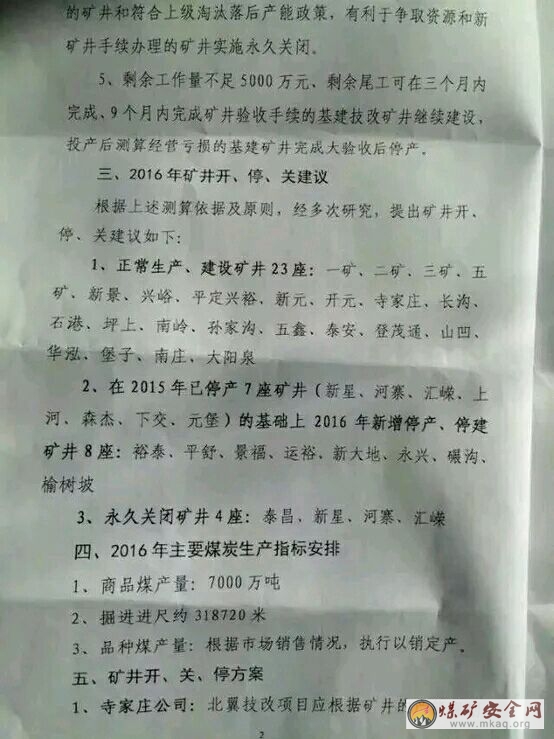 的矿井和符合上级淘汰落后产能政策，有利于争取资源和新
矿井手续办理的矿井实施永久关闭。
5、剩余工作量不足5000万元、剩余尾工可在三个月内
完成、9个月内完成矿井验收手续的基建技改矿井继续建设，
投产后测算经营亏损的基建矿井完成大验收后停产。
三、2016年矿井开、停、关建议
根据上述测算依据及原则，经多次研究，提出矿井开、
停、关建议如下：
1、正常生产、建设矿井23座：一矿、二矿、三矿、五
矿、新景、兴峪、平定兴裕、新元、开元、寺家庄、长沟、
石港、坪上、南岭、孙家沟、五鑫、泰安、登茂通、山凹、
华泓、堡子、南庄、大阳泉
2、在2015年已停产7座矿井（新星、河寨、汇嵘、上
河、森杰、下交、元堡）的基础上2016年新增停产、停建
矿井8座：裕泰、平舒、景福、运裕、新大地、永兴、碾沟、
榆树坡
3、永久关闭矿井4座：泰昌、新星、河寨、汇嵘
四、2016年主要煤炭生产指标安排
1、商品煤产量：7000万吨
2、掘进进尺约318720米
3、品种煤产量：根据市场销售情况，执行以销定产。
五、矿井开、关、停方案
1、寺家庄公司：北翼技改项目应根据矿井的
2
煤矿安全网
www.mkaq.org